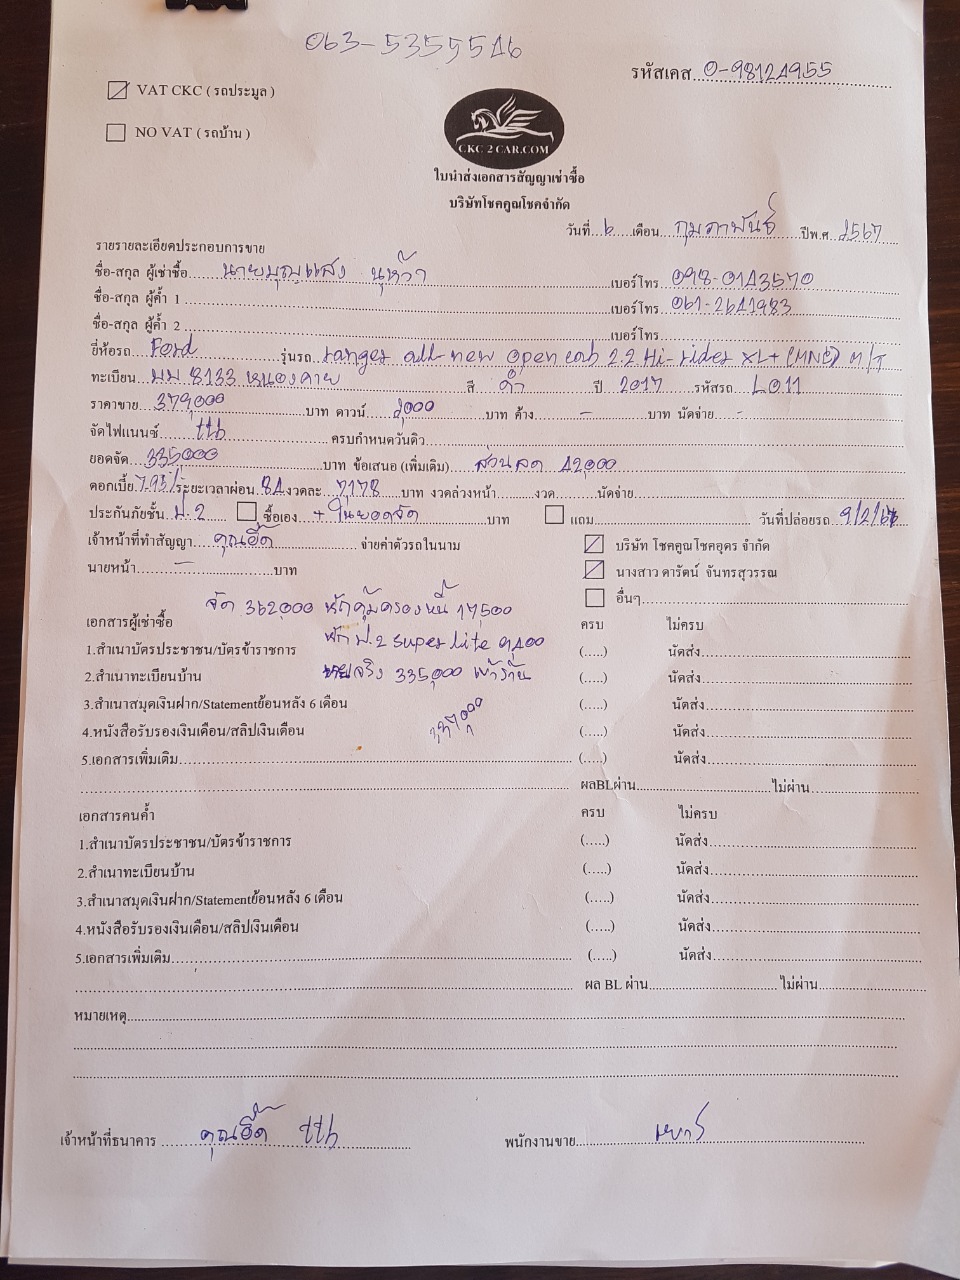 063-5355546
รหัสเคส 0-98124955
VAT CKC ( รถประมูล )
NO VAT ( รถบ้าน )
CKC 2 CAR.COM
ใบนำส่งเอกสารสัญญาเช่าซื้อ
บริษัทโชคคูณโชคจำกัด
วันที่ 6 เดือน กุมภาพันธ์ ปีพ.ศ. 2567
รายรายละเอียดประกอบการขาย
ชื่อ-สกุล ผู้เช่าซื้อ นายบุญแสง นุหว้า เบอร์โทร 098-0143570
ชื่อ-สกุล ผู้ค้ำ 1 เบอร์โทร 061-2641983
ชื่อ-สกุล ผู้ค้ำ 2 เบอร์โทร
ยี่ห้อรถ Ford รุ่นรถ ranger all-new open cab 2.2 Hi-rider XL+ (MNE) M/T
ทะเบียน บม 8133 หนองคาย สี ดำ ปี 2017 รหัสรถ L011
ราคาขาย 379,000 บาท ดาวน์ 2,000 บาท ค้าง - บาท นัดจ่าย -
จัดไฟแนนซ์ ttb ครบกำหนดวันดิว
ยอดจัด 335,000 บาท ข้อเสนอ (เพิ่มเติม) ส่วนลด 42,000
ดอกเบี้ย 7.95% ระยะเวลาผ่อน 84 งวดละ 7,178 บาท งวดล่วงหน้า งวด นัดจ่าย
ประกันภัยชั้น ป.2 ซื้อเอง + ในยอดจัด บาท แถม วันที่ปล่อยรถ 9/2/67
เจ้าหน้าที่ทำสัญญา คุณอี๊ด จ่ายค่าตัวรถในนาม บริษัท โชคคูณโชคอุดร จำกัด
นายหน้า - บาท นางสาว ดารัตน์ จันทรสุวรรณ
อื่นๆ
จัด 362,000 หักคุ้มครองหนี้ 17,500
เอกสารผู้เช่าซื้อ ครบ ไม่ครบ
หัก ป.2 super lite 9,400
1.สำเนาบัตรประชาชน/บัตรข้าราชการ (.....) นัดส่ง
2.สำเนาทะเบียนบ้าน จริง 335,000 เข้าร้าน (.....) นัดส่ง
3.สำเนาสมุดเงินฝาก/Statementย้อนหลัง 6 เดือน (.....) นัดส่ง
4.หนังสือรับรองเงินเดือน/สลิปเงินเดือน (.....) นัดส่ง
5.เอกสารเพิ่มเติม (.....) นัดส่ง
ผลBLผ่าน ไม่ผ่าน
เอกสารคนค้ำ ครบ ไม่ครบ
1.สำเนาบัตรประชาชน/บัตรข้าราชการ (.....) นัดส่ง
2.สำเนาทะเบียนบ้าน (.....) นัดส่ง
3.สำเนาสมุดเงินฝาก/Statementย้อนหลัง 6 เดือน (.....) นัดส่ง
4.หนังสือรับรองเงินเดือน/สลิปเงินเดือน (.....) นัดส่ง
5.เอกสารเพิ่มเติม (.....) นัดส่ง
ผล BL ผ่าน ไม่ผ่าน
หมายเหตุ
เจ้าหน้าที่ธนาคาร คุณอี๊ด ttb พนักงานขาย